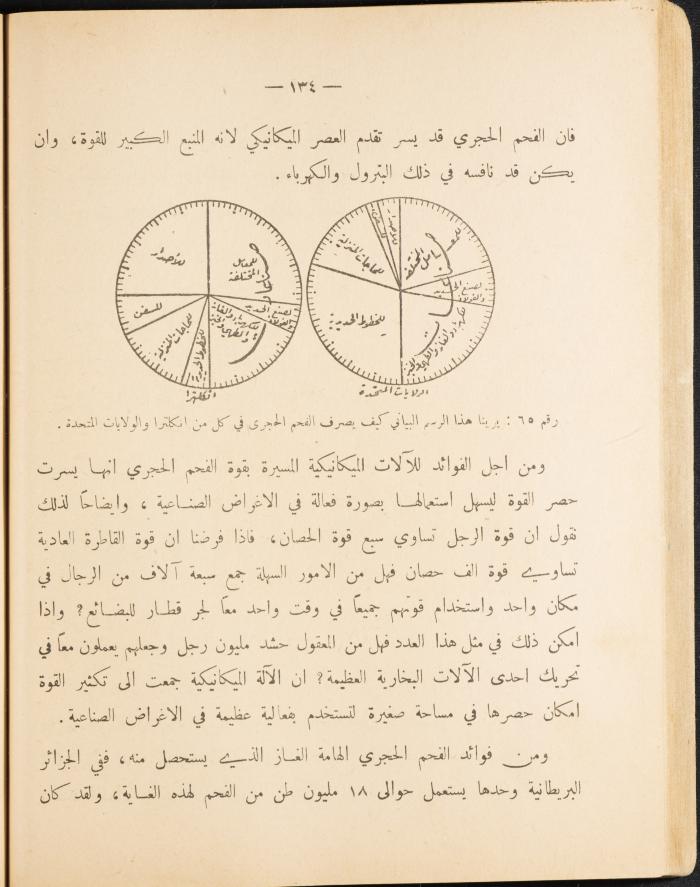 — ١٣٤ —
فان الفحم الحجري قد يسر تقدم العصر الميكانيكي لانه المنبع الكبير للقوة، وان
يكن قد نافسه في ذلك البترول والكهرباء .
للأصدار
للمعامل المختلفة
للسفن
للحاجات المنزلية
للخطوط الحديدية
لصنع الحديد والفولاذ
للكهرباء والغاز والطهي والخبز
صناعات
انكلترا
للسفن
للحاجات المنزلية
للمعامل المختلفة
لصنع الحديد والفولاذ
للخطوط الحديدية
للكهرباء والغاز والطهي والخبز
صناعات
الولايات المتحدة
رقم ٦٥ : يرينا هذا الرسم البياني كيف يصرف الفحم الحجري في كل من انكلترا والولايات المتحدة .
ومن اجل الفوائد للآلات الميكانيكية المسيرة بقوة الفحم الحجري انها يسرت
حصر القوة ليسهل استعمالها بصورة فعالة في الاغراض الصناعية ، وايضاحاً لذلك
نقول ان قوة الرجل تساوي سبع قوة الحصان، فاذا فرضنا ان قوة القاطرة العادية
تساوي قوة الف حصان فهل من الامور السهلة جمع سبعة آلاف من الرجال في
مكان واحد واستخدام قوتهم جميعاً في وقت واحد معاً لجر قطار للبضائع? واذا
امكن ذلك في مثل هذا العدد فهل من المعقول حشد مليون رجل وجعلهم يعملون معاً في
تحريك احدى الآلات البخارية العظيمة? ان الآلة الميكانيكية جمعت الى تكثير القوة
امكان حصرها في مساحة صغيرة لتستخدم بفعالية عظيمة في الاغراض الصناعية .
ومن فوائد الفحم الحجري الهامة الغاز الذي يستحصل منه، ففي الجزائر
البريطانية وحدها يستعمل حوالى ١٨ مليون طن من الفحم لهذه الغاية، ولقد كان